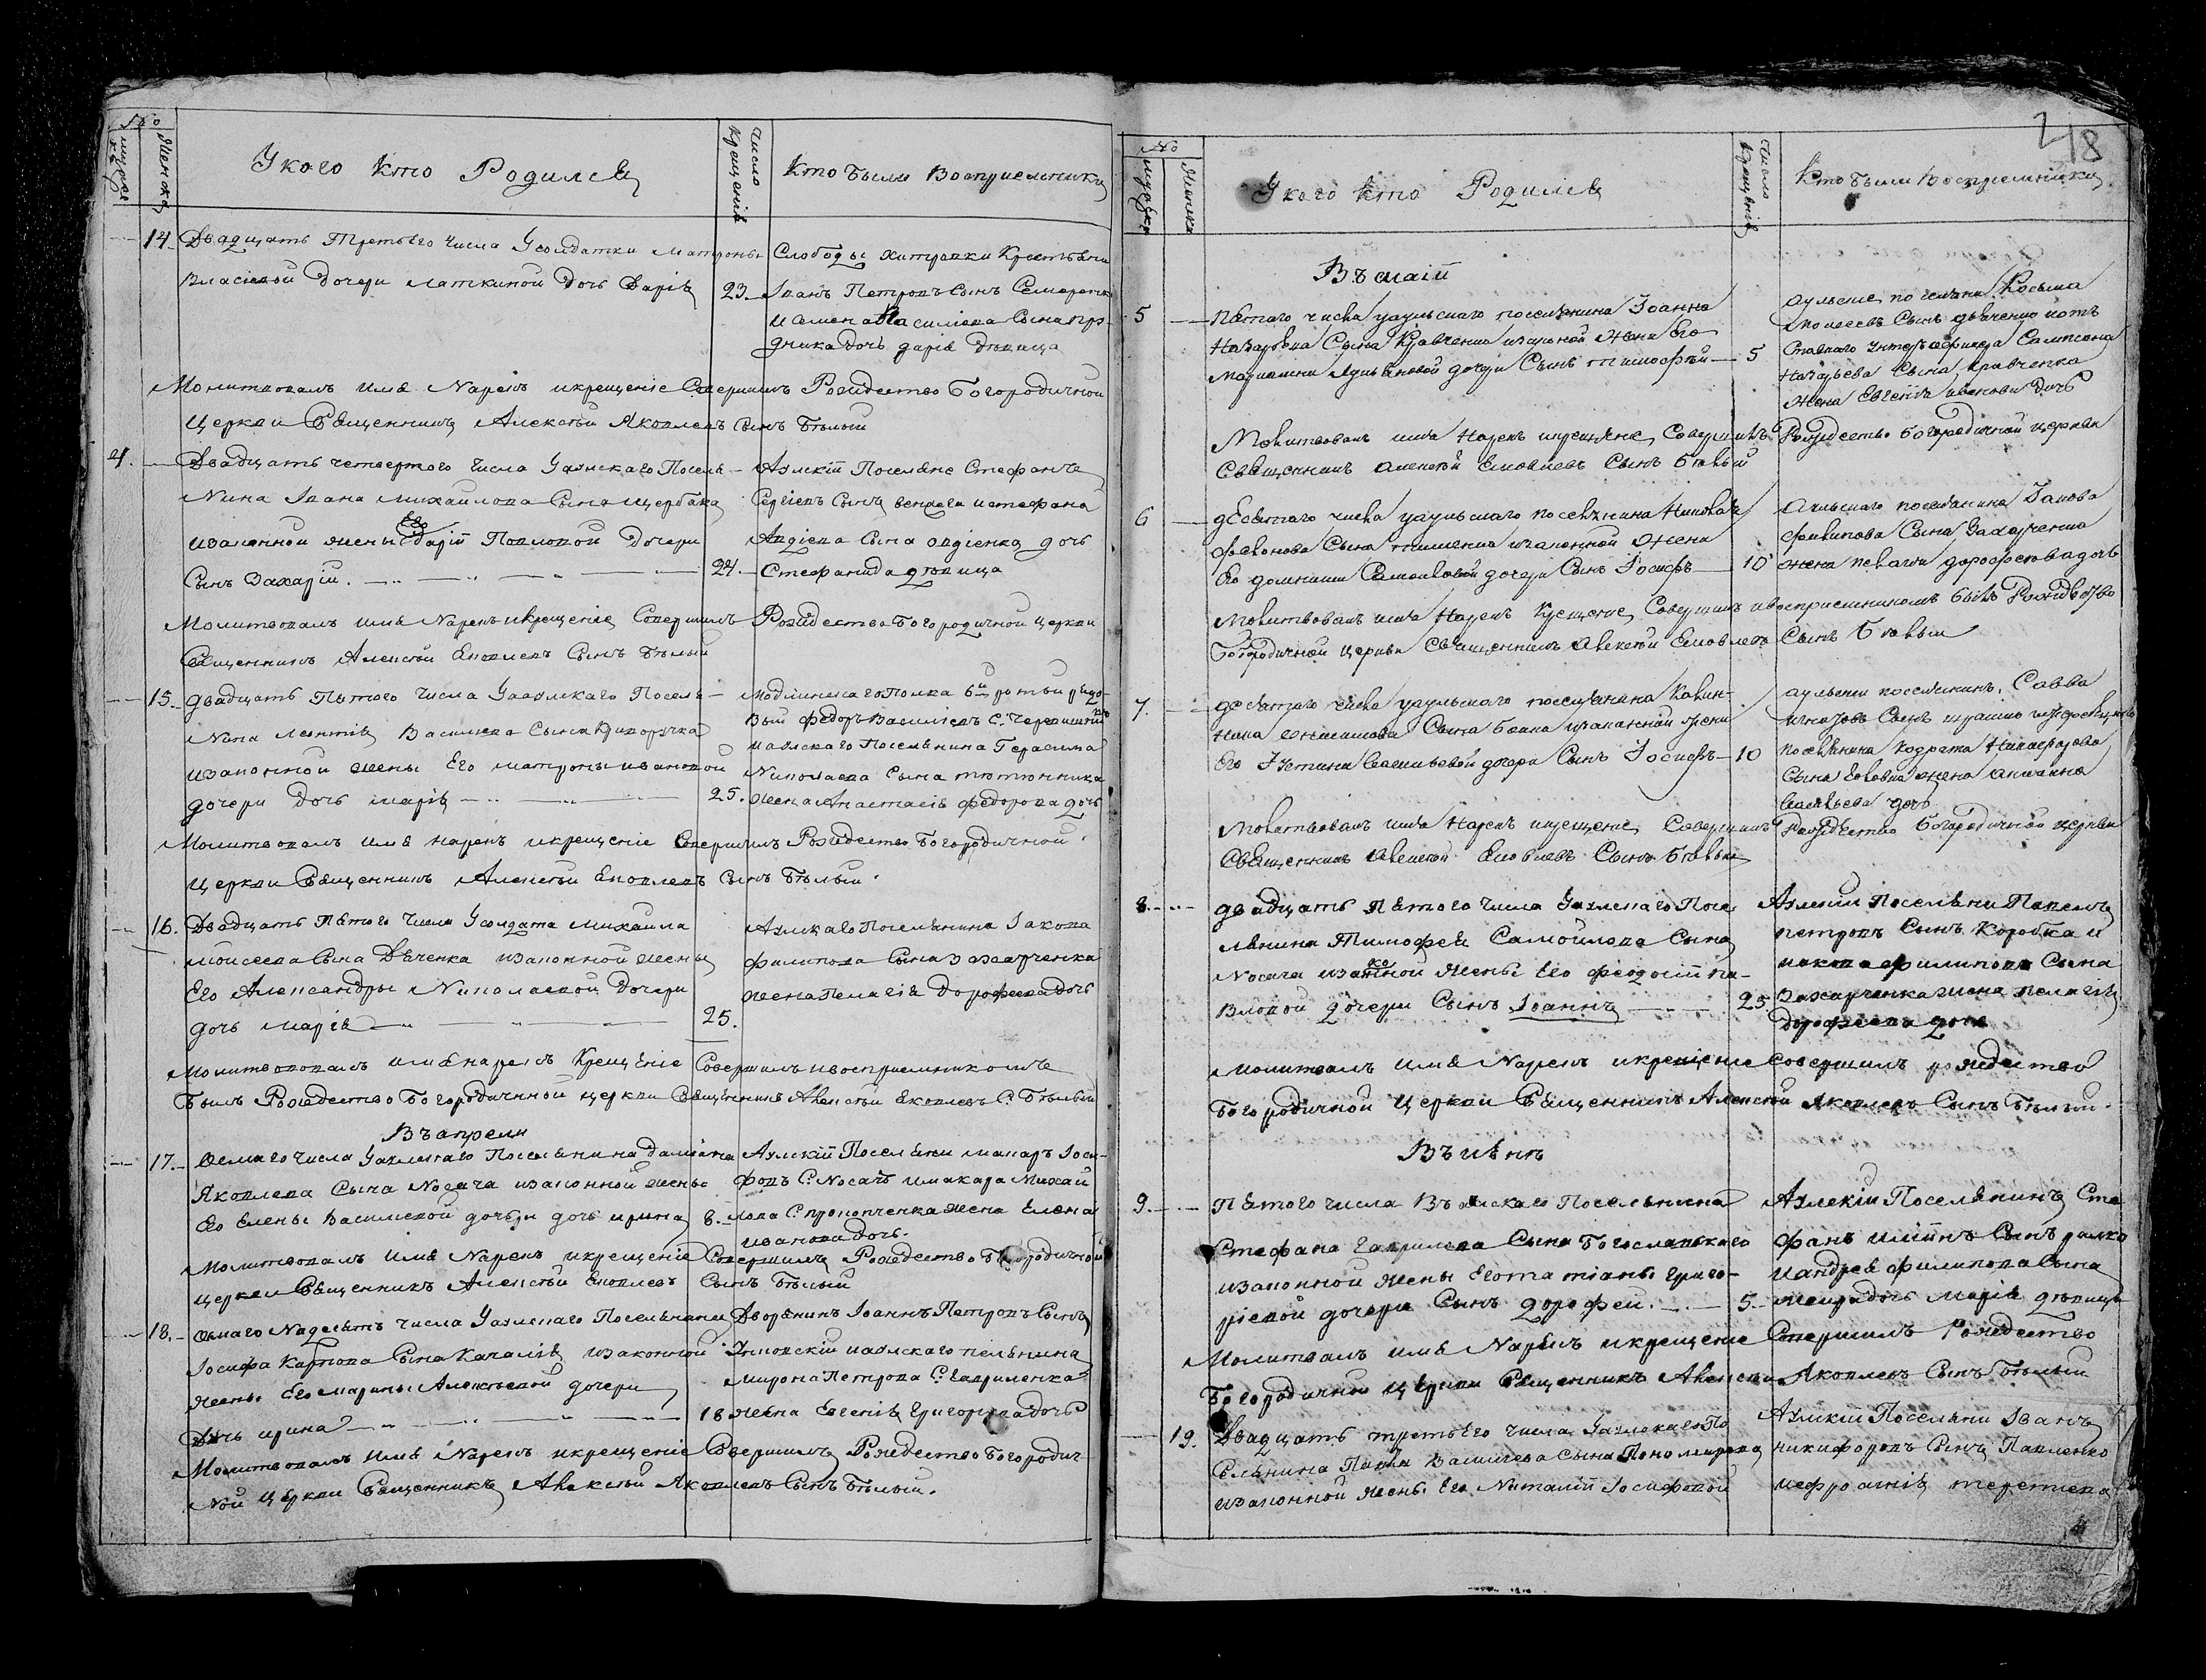 №
мужеска
Женска
У кого кто Родился
Число Крещенія
Кто были Восприемники
14. Двадцать Третьего числа У солдатки матроны
Власіевой Дочери латкиной Дочь Дарія 23.
Слободы хитровки Крестьяни
Іванъ Петровъ Сынъ Семеренко
и Семена Василіева Сына
дника дочь дарія девица
Молитвовалъ имя Нарекъ икрещеніе Совершилъ Рождество Богородичной
Церкви Священникъ Алексѣй Яковлевъ Сынъ Бѣлый
4. Двадцать четвертого числа Уаулскаго Поселя-
Нина Івана михаилова Сына щербака
изаконной жены Его Даріи Павловой Дочери
Сынъ Захарій. 24.
Аулскій Поселяне Стефанъ
Сергіевъ Сынъ истефана
Авдіева Сына авдіенка дочь
Стефанида девица
Молитвовалъ имя Нарекъ икрещеніе Совершилъ Рождество Богородичной церкви
Священникъ Алексѣй Яковлевъ Сынъ Бѣлый
15. двадцать Пятого числа Уаулскаго Поселя-
Нина леонтія Василіева Сына
изаконной жены Его матроны ивановой
дочери Дочь марія 25.
модлинскаго Полка 6й роты рядо-
вый федоръ Василіевъ С.
иаулскаго Поселянина Герасима
Николаева Сына тютюнника
жена Анастасія федорова дочь
Молитвовалъ имя нарекъ икрещеніе Совершилъ Рождество Богородичной
Церкви Священникъ Алексѣй Яковлевъ Сынъ Бѣлый.
16. Двадцать Пятого числа Усолдата михаила
мойсеева Сына Дяченка изаконной жены
Его Александры Николаевой Дочери
дочь марія 25.
Аулскаго Поселянина Іакова
филипова Сына Захарченка
жена Пелагія Дорофеева дочь
Молитвовалъ имя нарекъ Крещеніе Совершилъ ивосприемникомъ
Былъ Рождество Богородичной церкви Священникъ Алексѣй Яковлевъ С. Бѣлый
Въ апрели
17. Осмаго числа Уаулскаго Поселянина даміана
Яковлева Сына Носача изаконной жены
Его Елены Василіевой дочери дочь ирина 8.
Аулскій Поселяни макаръ Іоси-
фовъ С. Носачъ имакара Михай
лова С. прокопченка жена Елена
иванова дочь.
Молитвовалъ имя Нарекъ икрещеніе Совершилъ Рождество Богородичной
церкви Священникъ Алексѣй Яковлевъ Сынъ Бѣлый
18. осмаго Надесять числа Уаулскаго Поселянина
Іосифа Карпова Сына изаконной
жены Его Марины Алексѣевой дочери
Дочь ирина 18
Дворянинъ Іоаннъ Петровъ Сынъ
иаулскаго поселянина
мирона Петрова С. Гавриленка
жена Евгенія Григорьева дочь
Молитвовалъ имя Нарекъ икрещеніе Совершилъ Рождество Богородич-
Ной Церкви Священникъ Алексѣй Яковлевъ Сынъ Бѣлый.
248
№
мужеска
Женска
У кого кто Родился
Число Крещенія
Кто были Восприемники
Въ маіи
5 Пятаго числа уаульскаго поселянина Іоанна
Назарьева Сына Кравченка изаконой Жени Его
Маріамны дочери Сынъ тимофѣй 5
аульские поселяни Косьма
Сынъ
Ставнаго Унтерофицера Сампсона
Назарьева Сына Кравченка
жена Евгенія иванова Дочь
Молитвовалъ имя Нарекъ икрещение Совершилъ Рождество богородичной церкви
Священникъ алексѣй Ековлевъ Сынъ бѣлый
6 десятаго числа уаульскаго поселянина Николая
Сына изаконной жени
Его домникии Самойловой дочери Сынъ Іосифъ 10
Аульскаго поселянина Іакова
филипова Сына Захарченка
жена пелагия дорофеева дочь
Молитвовалъ имя Нарекъ Крещение Совершилъ ивосприемникомъ былъ Рождество
Богородичной церкви Священникъ алексѣй Ековлевъ Сынъ бѣлый
7. десятаго числа уаульскаго поселянина Калин-
ника Сына изаконной жени
Его Устини Васильевой дочери Сынъ Іосифъ 10
аульски поселянинъ Савва
Сынъ
поселянина кодрата Никифорова
Сына жена
Васильева дочь
Молитвовалъ имя Нарекъ икрещение Совершилъ Рождество Богородичной церкви
Священникъ алексѣй Ековлевъ Сынъ бѣлый
8. двадцать Пятого числа Уаулскаго Посе
лянина Тимофея Самойлова Сына
Носача изаконной жены Его феодосіи па-
вловой дочери Сынъ Іоаннъ 25.
Аулскій Поселяни Павелъ
петровъ Сынъ Коробка и
иакова филипова Сына
Захарченка жена пелагія
дорофеева дочь
молитвалъ имя Нарекъ икрещеніе Совершилъ рождество
Богородичной Церкви Священникъ Алексѣй Яковлевъ Сынъ Бѣлый.
Въ июнѣ
9. Пятого числа Въаулскаго Поселянина
Стефана Гаврилова Сына Богославского
изаконной жены Его татіаны григо-
ріевой дочери Сынъ дорофей. 5.
Аулскій Поселянинъ Сте
фанъ Сынъ
иандрея филипова Сына
дочь Марія девица
Молитвалъ имя Нарекъ икрещеніе Совершилъ Рождество
Богородичной Церкви Священникъ Алексѣй Яковлевъ Сынъ Бѣлый
19. Двадцать третьего числа Уаулскаго По
селянина Павла Василіева Сына Пономарева
изаконной жены Его Наталіи Іосифовой
Аулскій Поселяни Іванъ
никифоровъ Сынъ Павленко
иефросинія терентіева